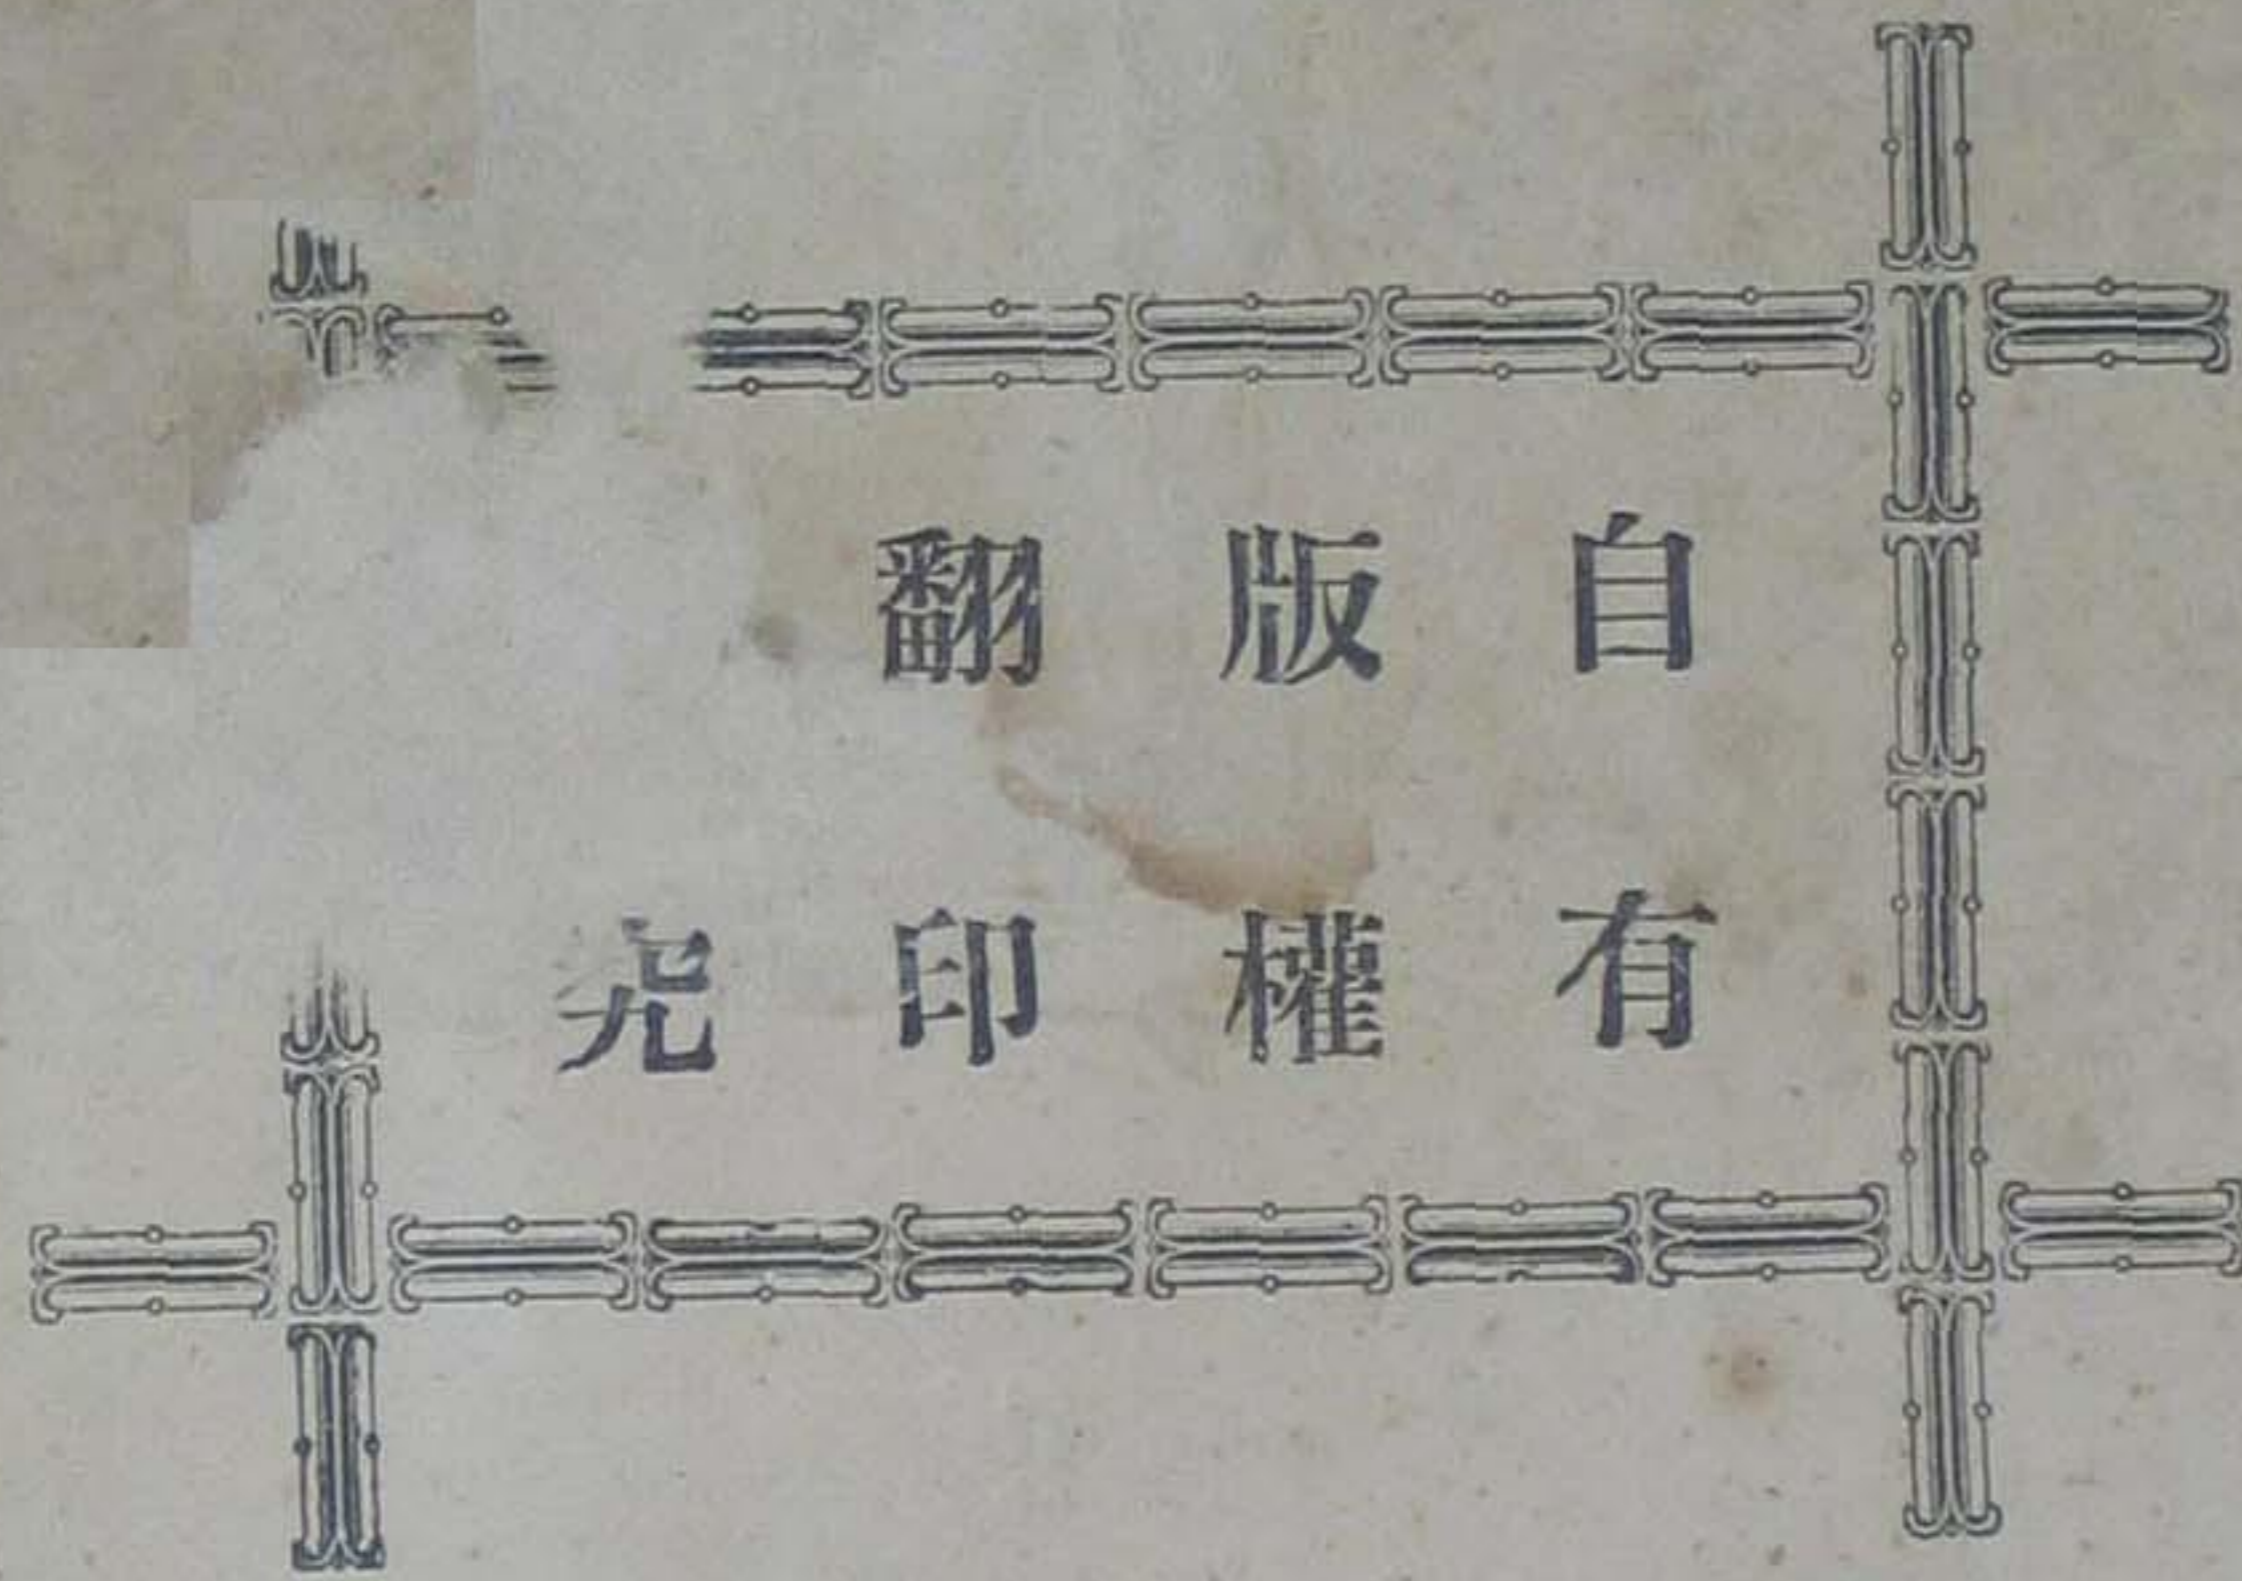 自有
版權
翻印
究